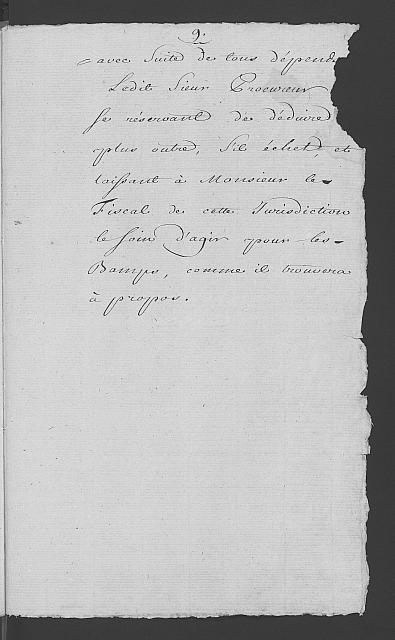 9.
avec Suite de tous dépend
Ledit Sieur Procureur
se réservant de déduire
plus outre, s'il échet, et
laissant à Monsieur le
Fiscal de cette Jurisdiction
le soin d'agir pour les
Bamps, comme il trouvera
à propos.